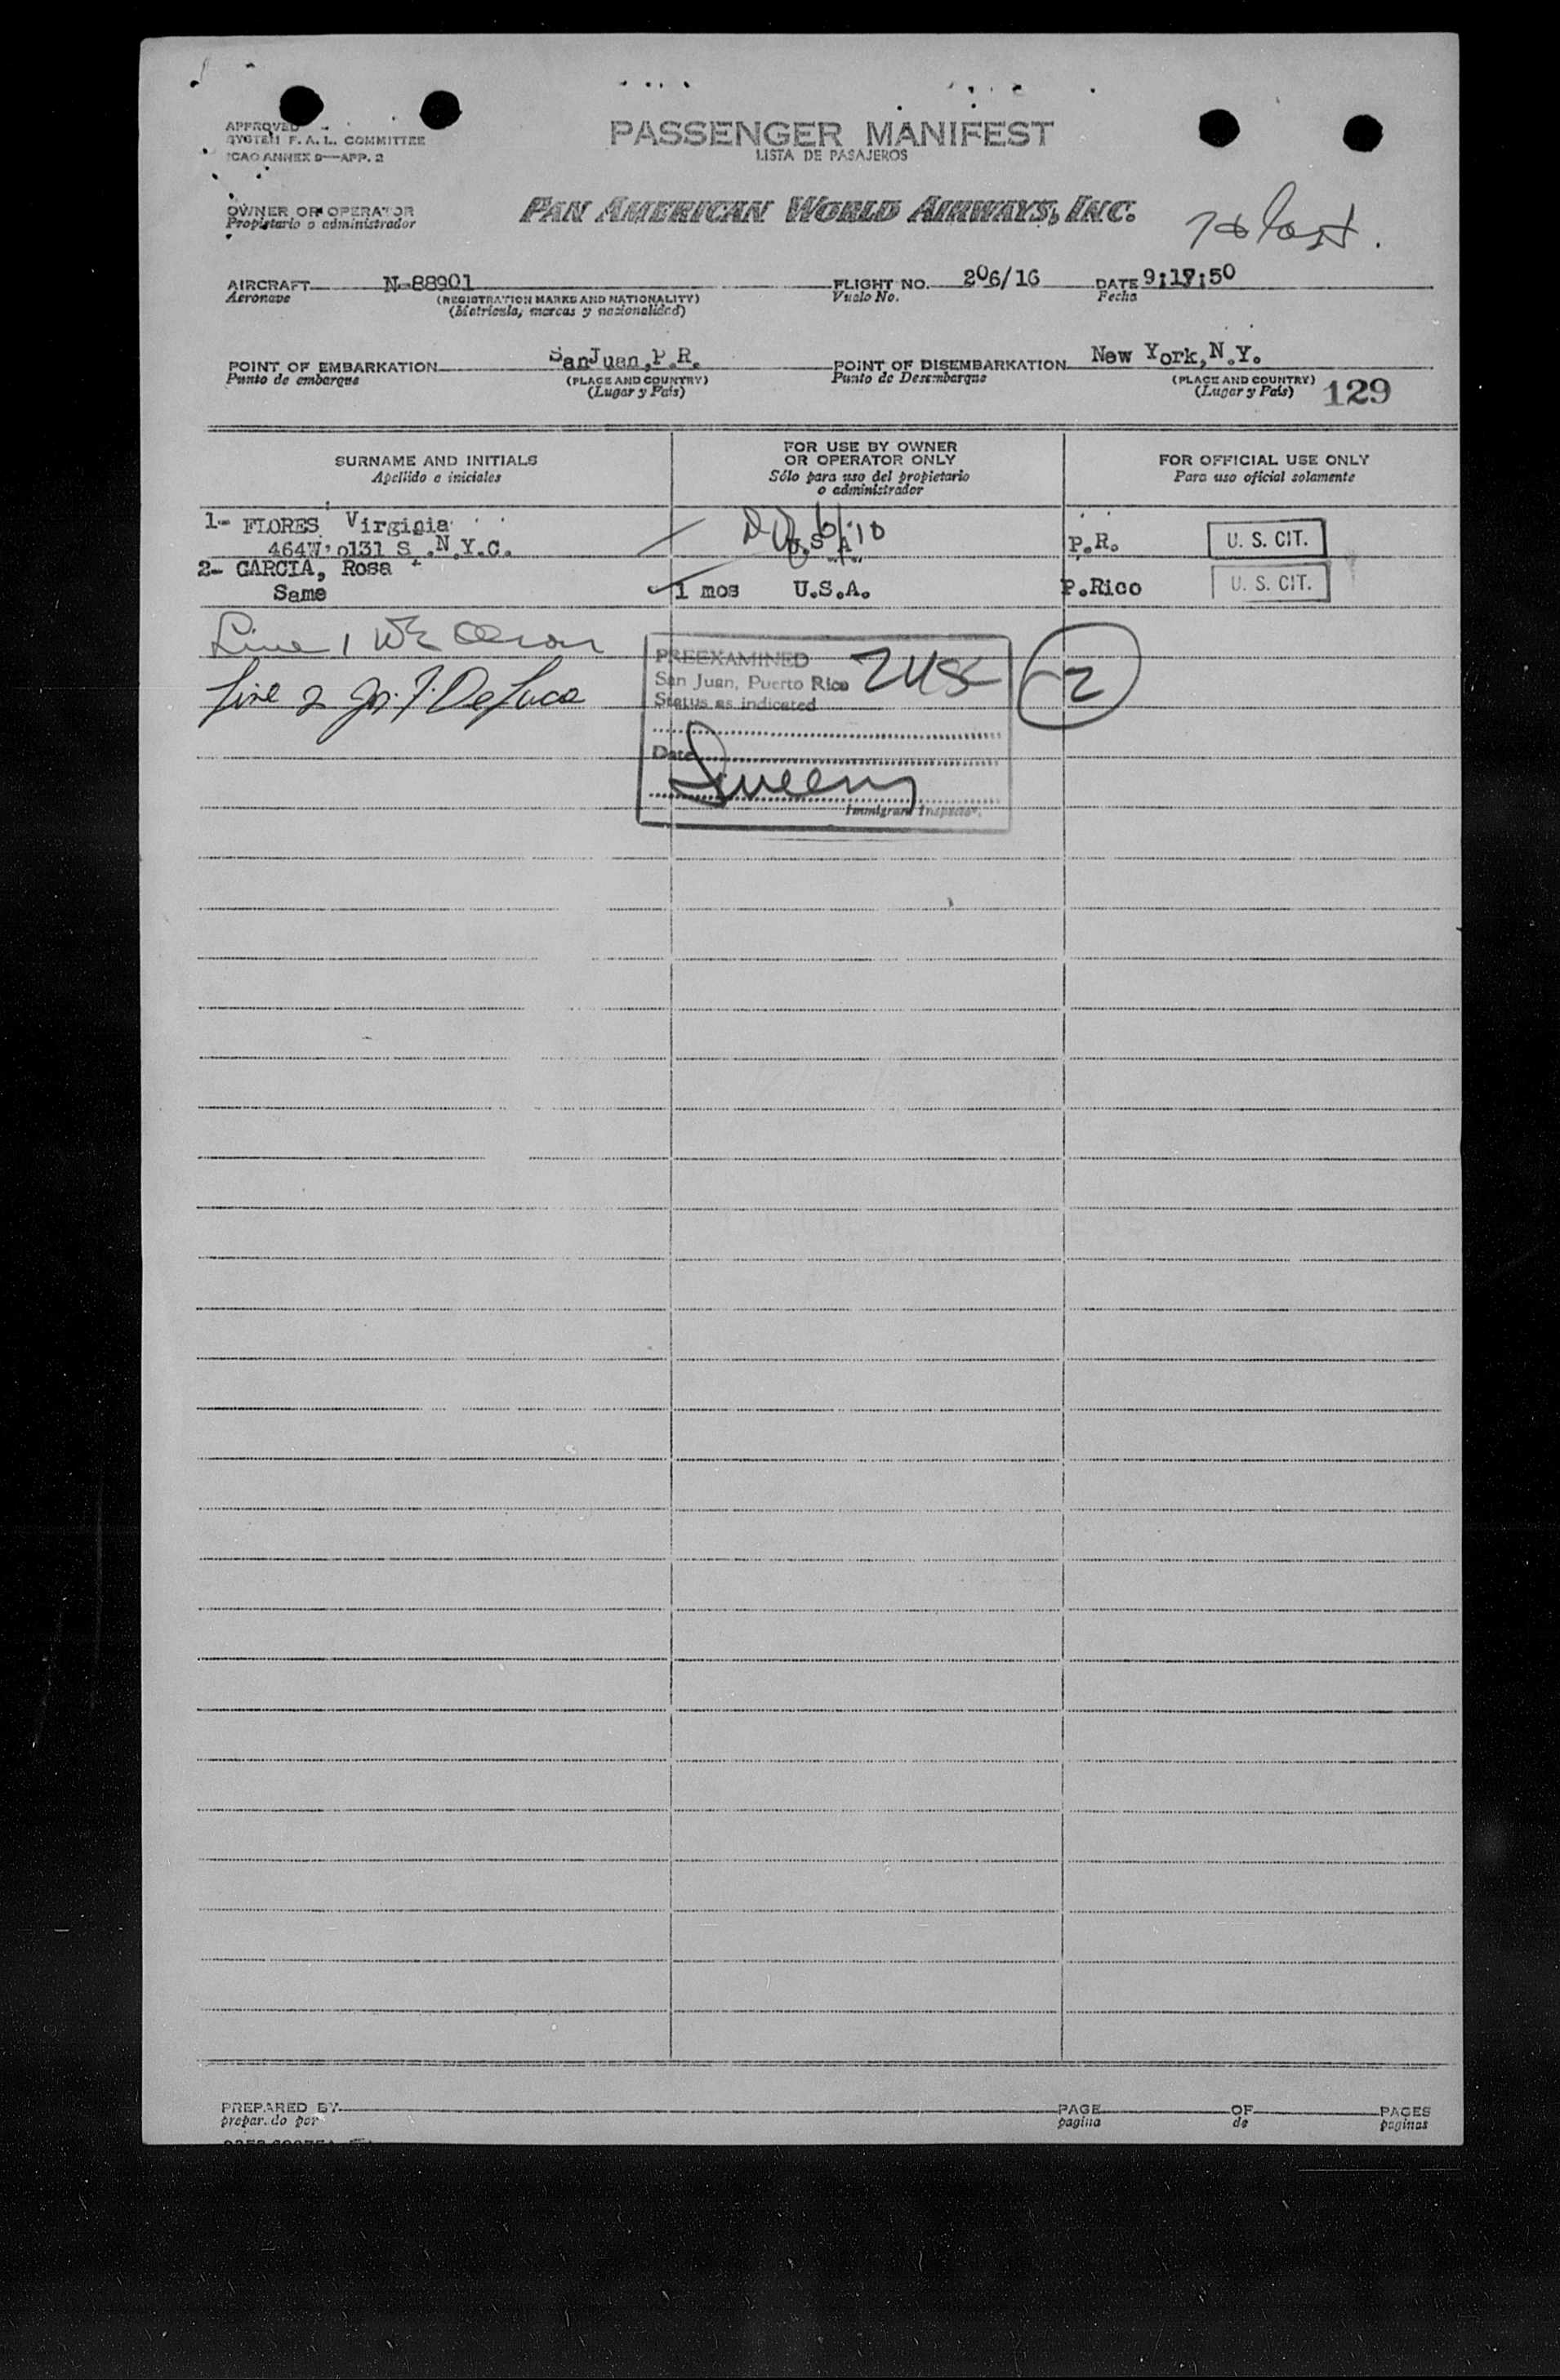 APPROVED
SYSTEM F. A. L. COMMITTEE
ICAO ANNEX 9—APP. 2
PASSENGER MANIFEST
LISTA DE PASAJEROS
OWNER OR OPERATOR
Propietario o administrador
PAN AMERICAN WORLD AIRWAYS, INC.
AIRCRAFT N-88901 FLIGHT NO. 206/16 DATE 9:17:50
Aeronave (REGISTRATION MARKS AND NATIONALITY) Vuelo No. Fecha
(Matricula, marcas y nacionalidad)
POINT OF EMBARKATION SanJuan,P.R. POINT OF DISEMBARKATION New York,N.Y.
Punto de embarque (PLACE AND COUNTRY) Punto de Desembarque (PLACE AND COUNTRY)
(Lugar y País) (Lugar y País) 129
SURNAME AND INITIALS
Apellido e iniciales
FOR USE BY OWNER
OR OPERATOR ONLY
Sólo para uso del propietario
o administrador
FOR OFFICIAL USE ONLY
Para uso oficial solamente
1- FLORES Virginia
464W. 131 S .N.Y.C. U.S.A. P.R. U. S. CIT.
2- GARCIA, Rosa
Same 1 mos U.S.A. P.Rico U. S. CIT.
Line 1
Line 2 DeLuca
PREEXAMINED 2USC 2
San Juan, Puerto Rico
Status as indicated
Date
Sweeny
Immigrant Inspector.
PREPARED BY PAGE OF PAGES
preparado por pagina de paginas